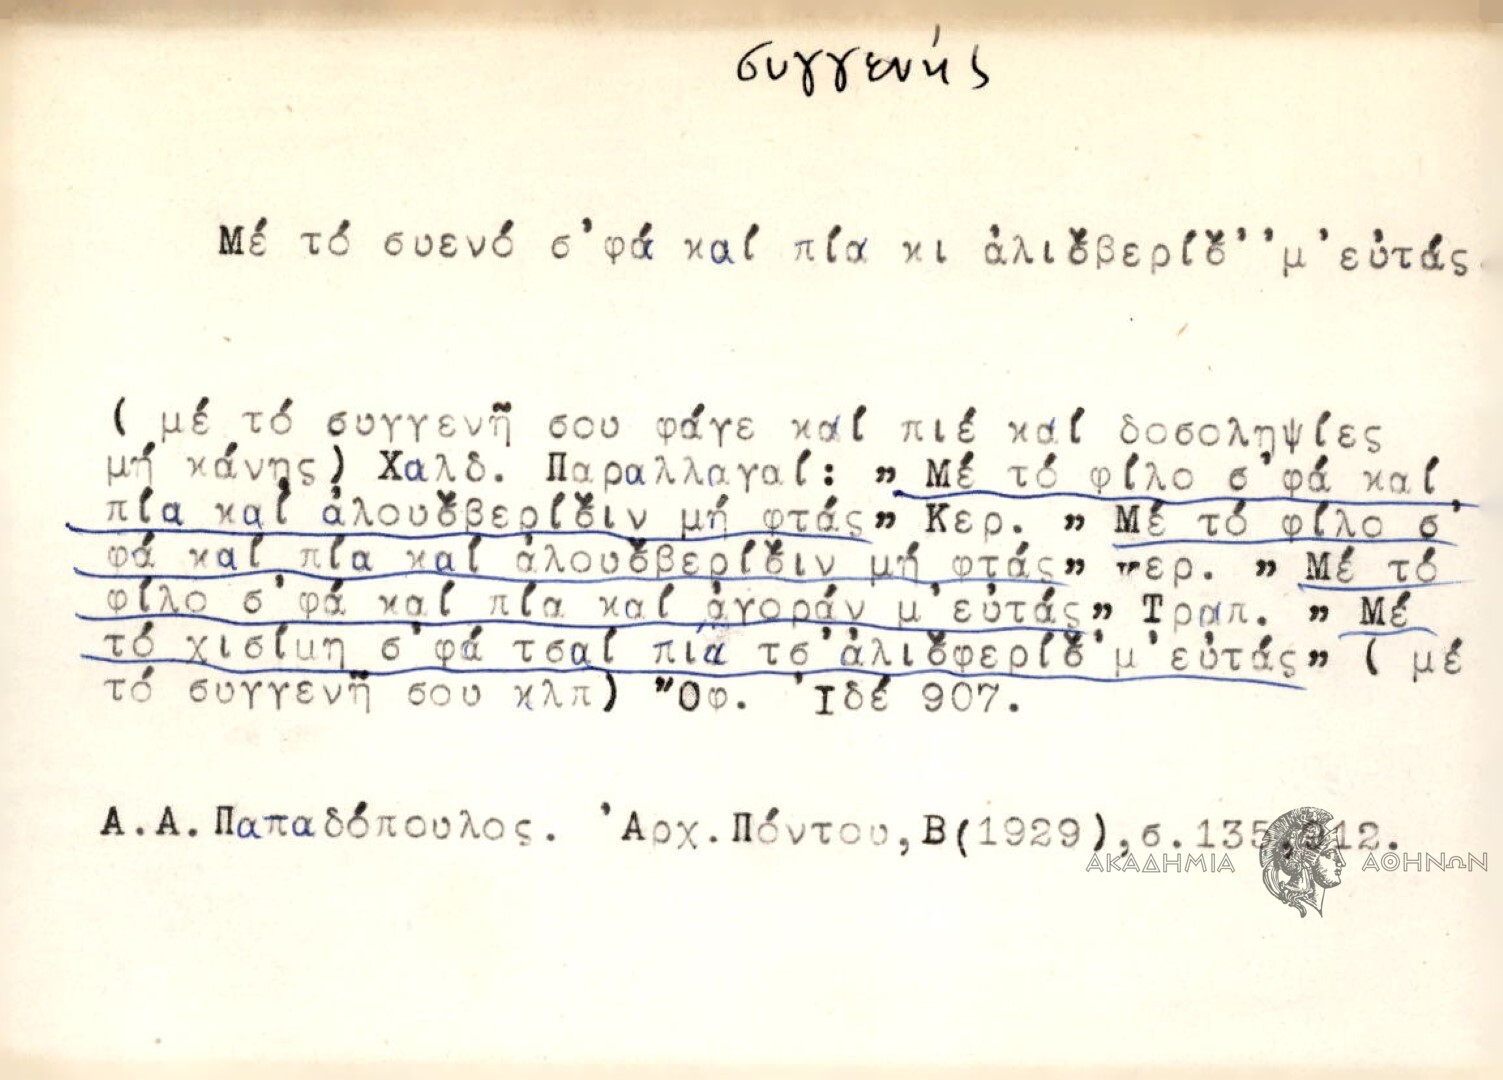 συγγενής
Μέ τό συενό σ'φά καί πία κι ἀλισ̌βερίσ̌''μ'εὐτάς.
( μέ τό συγγενῆ σου φάγε καί πιέ καί δοσοληψίες
μή κάνης) Χαλδ. Παραλλαγαί: „ Μέ τό φίλο σ'φά καί
πία καί ἀλουσ̌βερίσ̌ιν μή φτάς„ Κερ. „ Μέ τό φίλο σ'
φά καί πία καί ἀλουσ̌βερίσ̌ιν μή φτάς„ κερ. „ Μέ τό
φίλο σ'φά καί πία καί ἀγοράν μ'εὐτάς„ Τραπ. „ Μέ
τό χισίμη σ'φά τσαί πιά τσ'ἀλισ̌φερίσ̌'μ'εὐτάς„ ( μέ
τό συγγενῆ σου κλπ) "Οφ. 'Ιδέ 907.
Α.Α.Παπαδόπουλος. 'Αρχ.Πόντου,Β(1929),σ.135,912.
ΑΚΑΔΗΜΙΑ ΑΘΗΝΩΝ